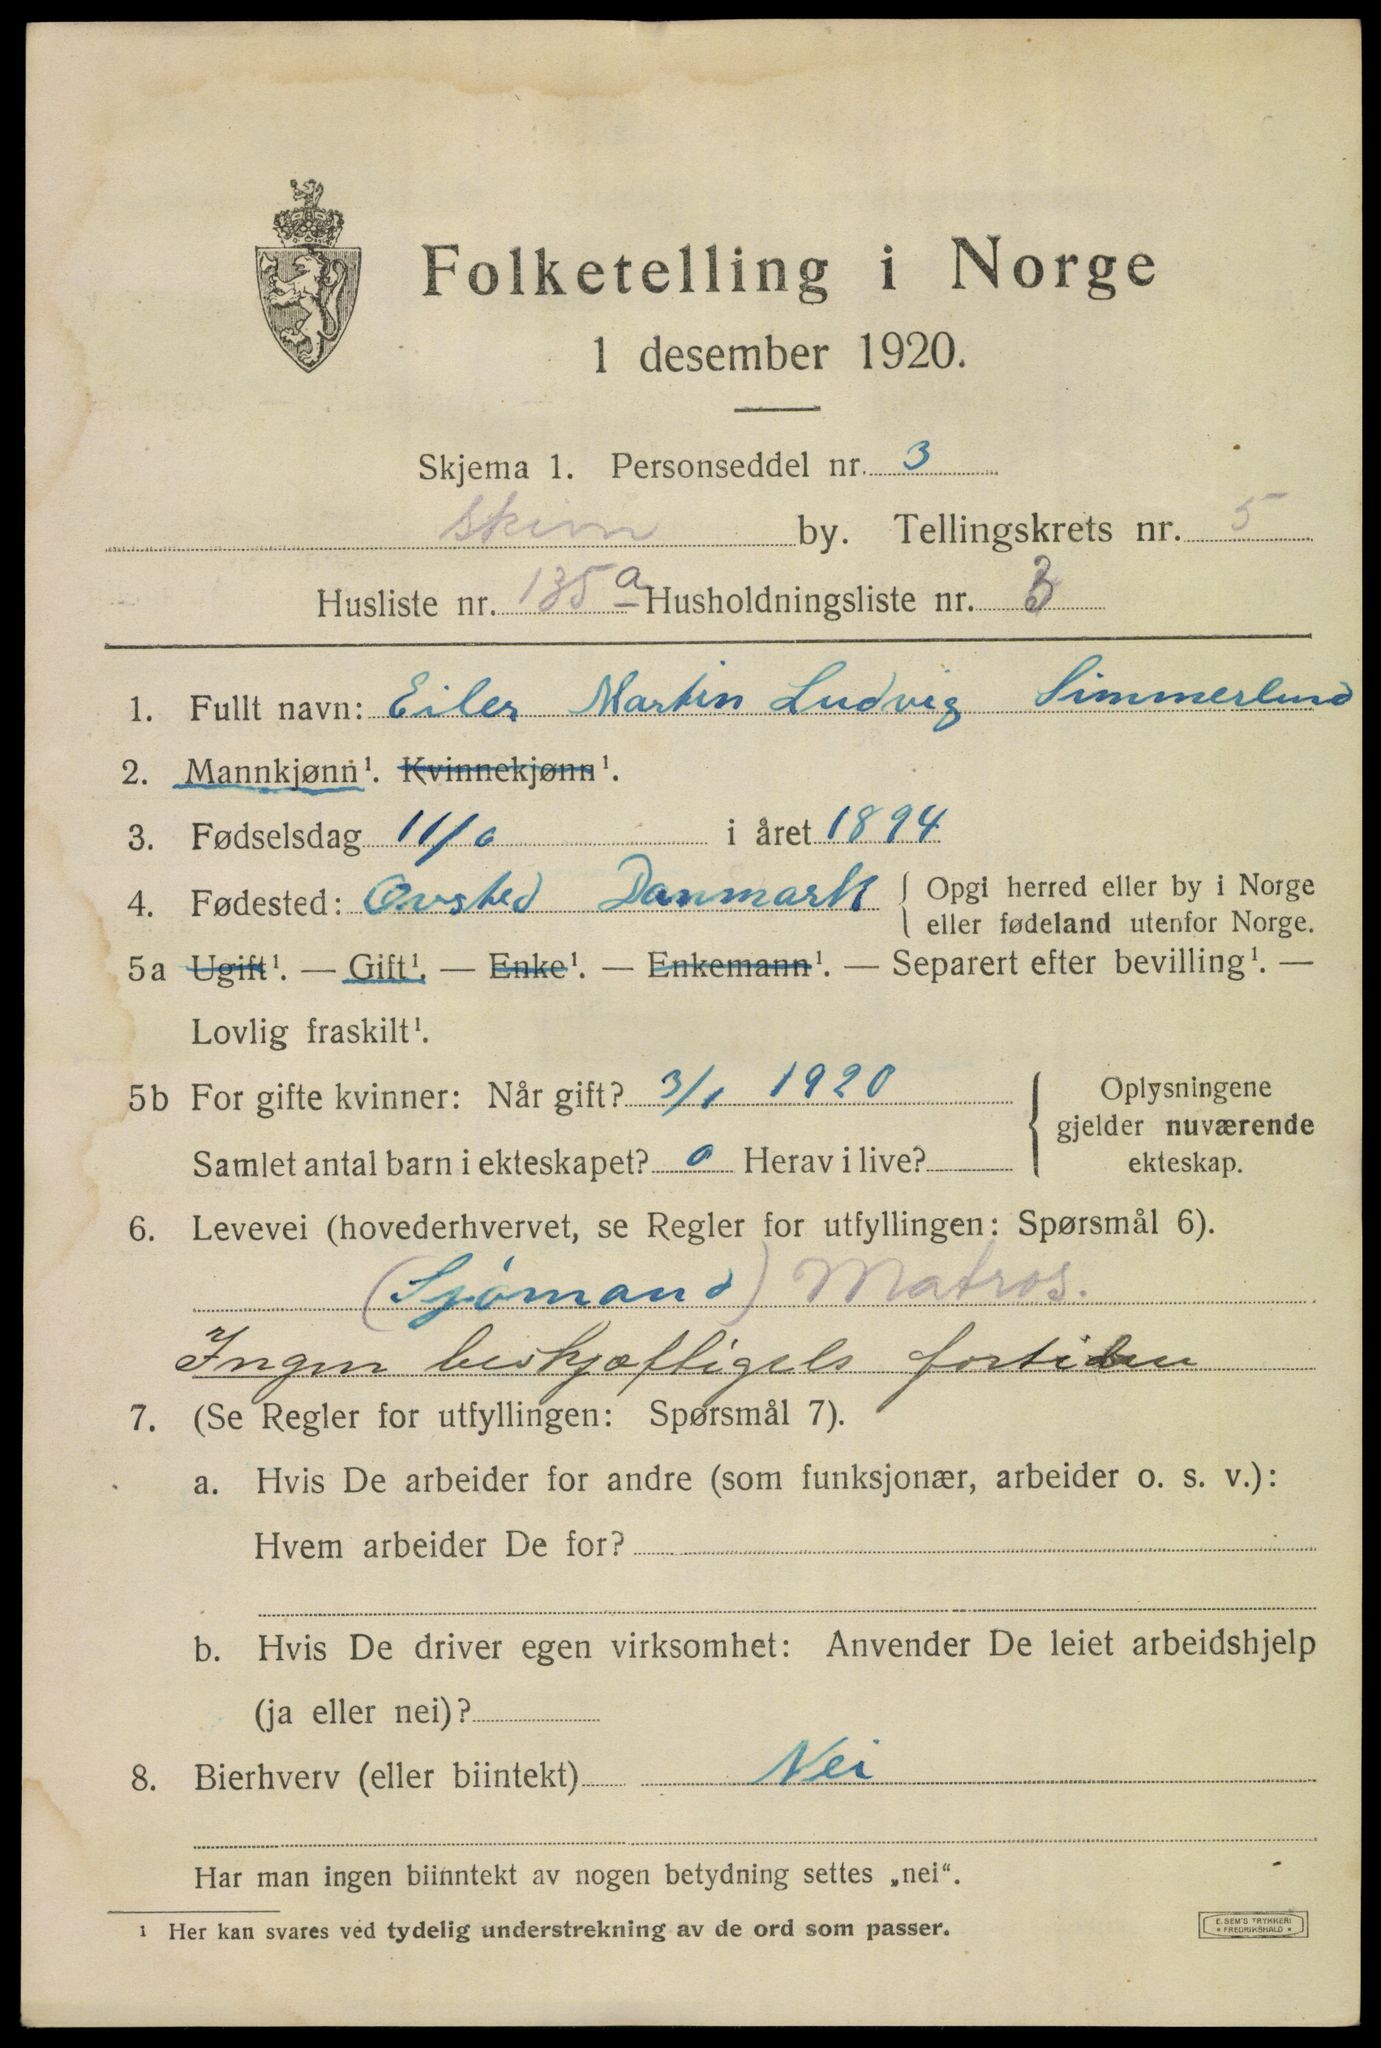 Folketelling i Norge
1 desember 1920.
Skjema 1. Personseddel nr. 3
Skien by. Tellingskrets nr. 5
Husliste nr. 135 a Husholdningsliste nr. 3
1. Fullt navn: Eiler Martin Ludvig Simmerlund
2. Mannkjønn¹. Kvinnekjønn¹.
3. Fødselsdag 11/ i året 1894
4. Fødested: Ørsted Danmark { Opgi herred eller by i Norge
eller fødeland utenfor Norge.
5a Ugift¹. — Gift¹. — Enke¹. — Enkemann¹. — Separert efter bevilling¹. —
Lovlig fraskilt¹.
5b For gifte kvinner: Når gift? 3/1 1920
Samlet antal barn i ekteskapet? 0 Herav i live?
Oplysningene
gjelder nuværende
ekteskap.
6. Levevei (hovederhvervet, se Regler for utfyllingen: Spørsmål 6).
(Sjömand) Matros.
Ingen beskjæftigels fortiden
7. (Se Regler for utfyllingen: Spørsmål 7).
a. Hvis De arbeider for andre (som funksjonær, arbeider o. s. v.):
Hvem arbeider De for?
b. Hvis De driver egen virksomhet: Anvender De leiet arbeidshjelp
(ja eller nei)?
8. Bierhverv (eller biintekt) Nei
Har man ingen biinntekt av nogen betydning settes „nei“.
¹ Her kan svares ved tydelig understrekning av de ord som passer.
E. SEM'S TRYKKERI
FREDRIKSHALD